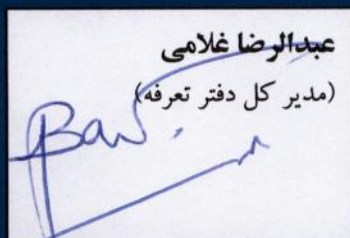 عبدالرضا غلامی
(مدیر کل دفتر تعرفه)